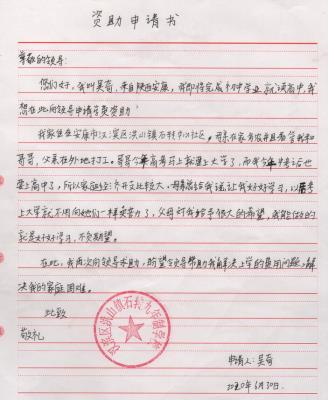 资助申请书
尊敬的领导:
您们好,我叫吴奇,来自陕西安康,我即将完成初中学业,就读高中,我
想在此向领导申请学费资助!
我家住在安康市汉滨区洪山镇石狩中心社区。母亲在家务农并且看管我和
哥哥,父亲在外地打工。哥哥今年高考马上就要上大学了,而我今年中考后也
要上高中了,所以家庭经济开支比较大。母亲总给我说,让我好好学习,以后考
上大学就不用向她们一样卖劳力了,父母对我给予很大的希望,我能做的
就是好好学习,不负期望。
在此,我再次向领导求助,盼望领导帮助我解决上学的费用问题,解
决我的家庭困难。
此致
敬礼
汉滨区洪山镇石狩九年制学校
申请人:吴奇
2020年6月30日